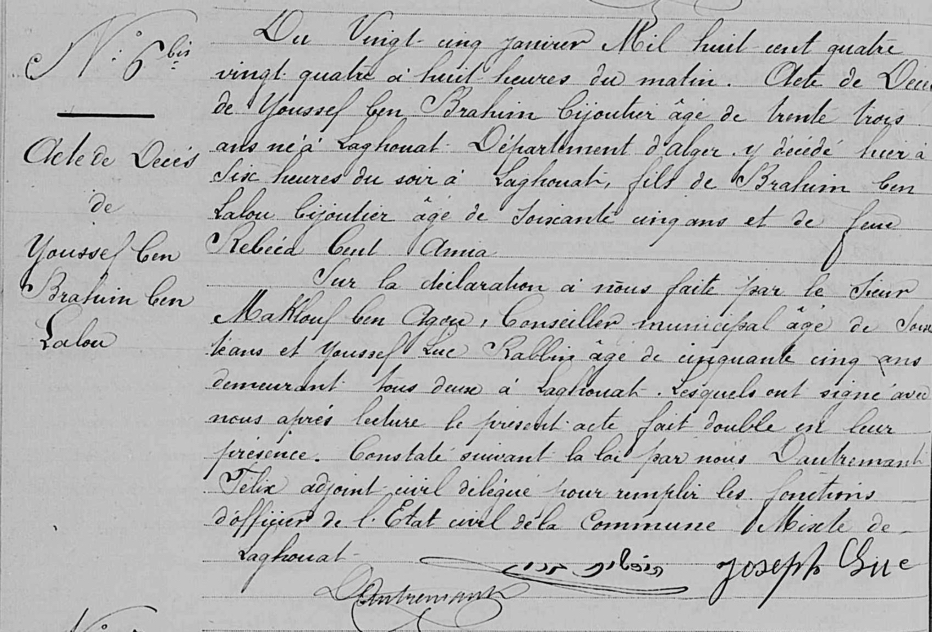 N° 6 bis
Acte de Decès
de
Youssef ben
Brahim ben
Lalou
Du Vingt cinq janvier Mil huit cent quatre
vingt quatre à huit heures du matin. Acte de Décè
de Youssef ben Brahim bijoutier âgé de trente trois
ans né à Laghouat Département d'Alger y décédé hier à
Six heures du soir à Laghouat, fils de Brahim ben
Lalou bijoutier âgé de soixante cinq ans et de feue
Rebéca bent Amia
Sur la déclaration à nous faite par le Sieur
Maklouf ben Agou, Conseiller municipal âgé de Soix
te ans et Youssef Luc Rabbin âgé de cinquante cinq ans
demeurant tous deux à Laghouat. Lesquels ont signé avec
nous après lecture le présent acte fait double en leur
présence. Constaté suivant la loi par nous Dautremant
Félix adjoint civil délégué pour remplir les fonctions
d'officier de l'Etat civil de la Commune Mixte de
Laghouat
Joseph
Dautremant
N°